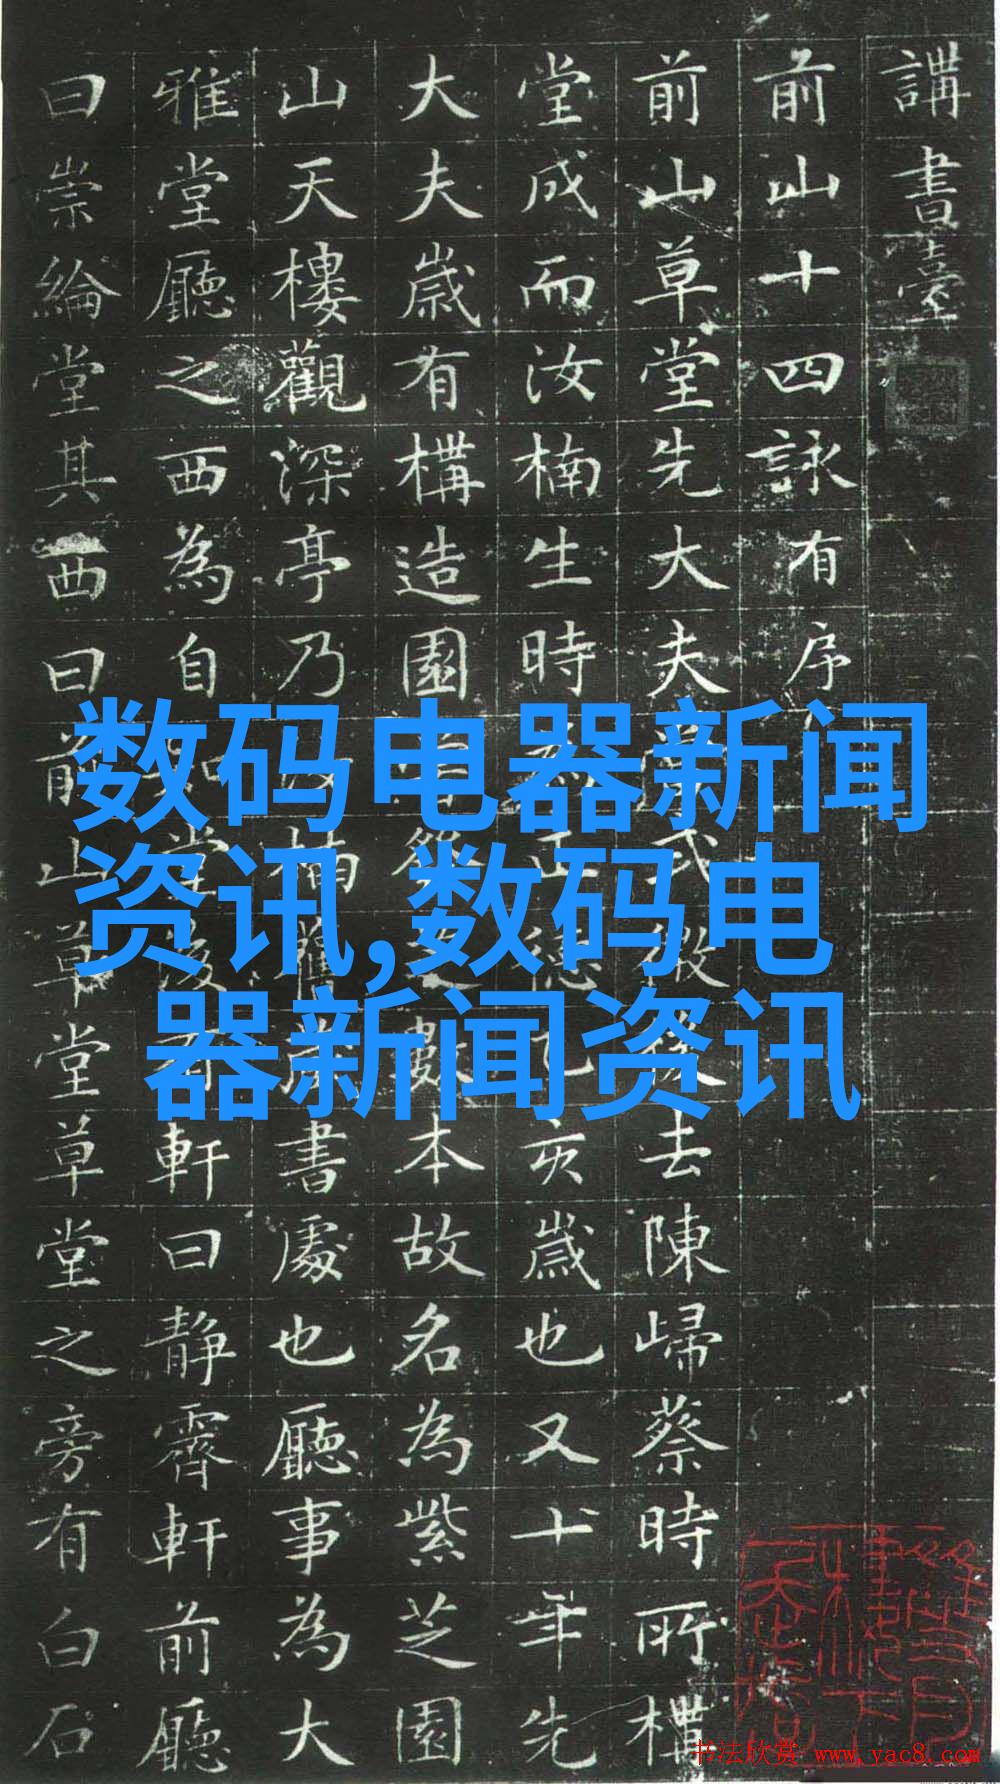 講書臺
前山十四詠有序
前山草堂先大夫武去陳歸蔡時所構
堂成而汝楠生時正德乙亥歲也又十年先
大夫歲有構造園數本故名為紫芝園
山天樓觀深亭乃楠書處也廳事為大
雅堂廳之西為自堂後有軒曰静霽軒前廳
曰崇綸堂其西曰前山草堂草堂之旁有白石
数码电器新闻
资讯,数码电
器新闻资讯
书法欣赏 www.yac8.com